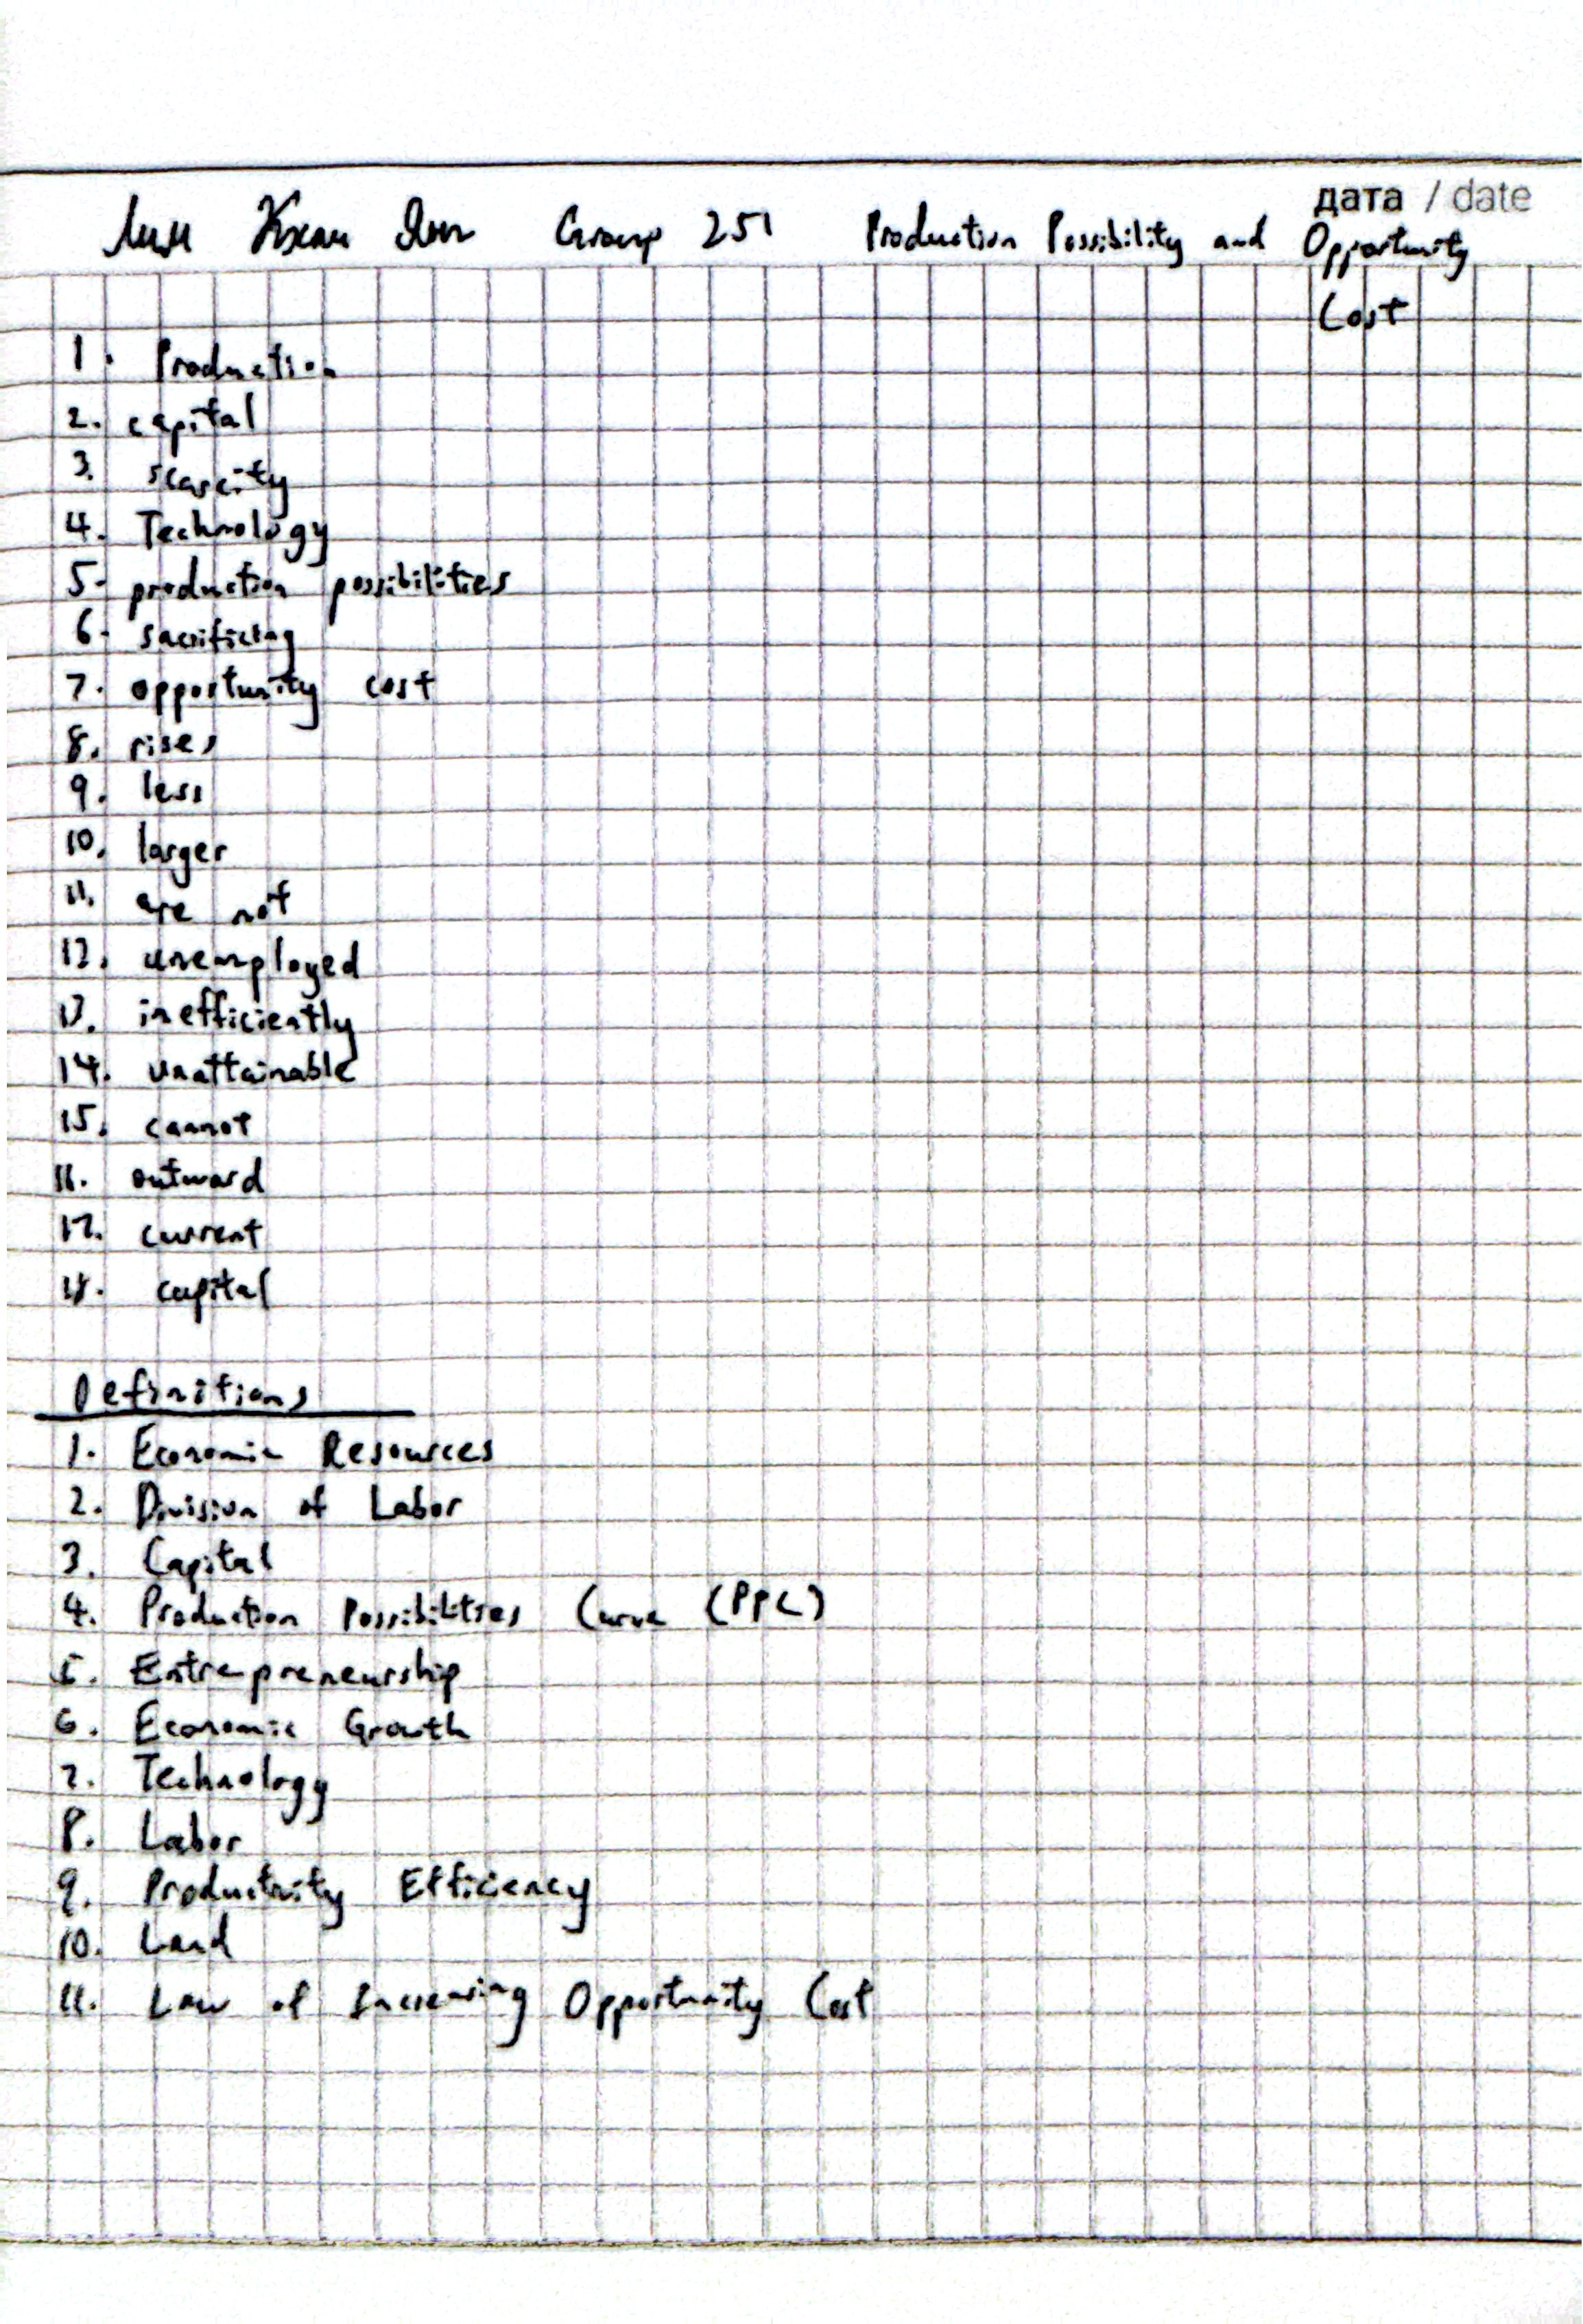 дата / date
Лин Кхан Ян Group 251 Production Possibility and Opportunity
Cost
1. Production
2. capital
3. scarcity
4. Technology
5. production possibilities
6. sacrificing
7. opportunity cost
8. rises
9. less
10. larger
11. are not
12. unemployed
13. inefficiently
14. unattainable
15. cannot
16. outward
17. current
18. capital
Definitions
1. Economic Resources
2. Division of Labor
3. Capital
4. Production Possibilities Curve (PPC)
5. Entrepreneurship
6. Economic Growth
7. Technology
8. Labor
9. Productivity Efficiency
10. Land
11. Law of Increasing Opportunity Cost